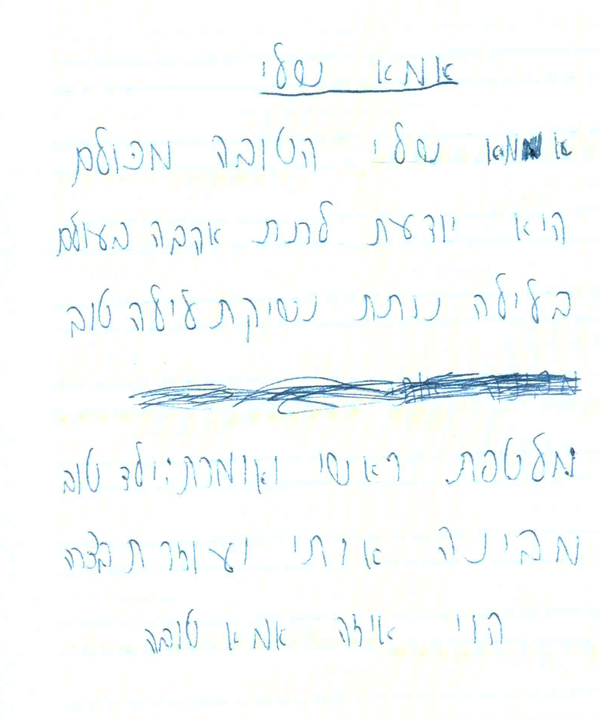 אמא שלי
אמא שלי הטובה מכולם
היא יודעת לתת אהבה בעולם
בלילה נותת נשיקת לילה טוב
מלטפת ראשי ואומרת: ילד טוב
מבינה אותי ועוזרת בצרה
הוי איזה אמא טובה